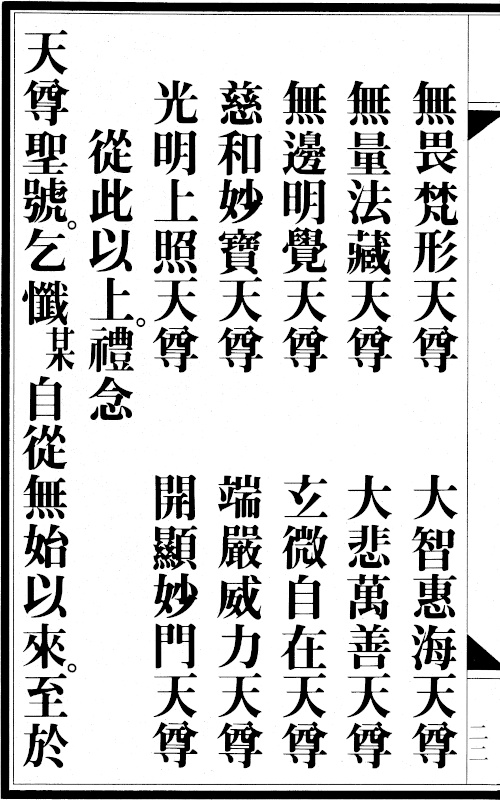 無畏梵形天尊　大智惠海天尊
無量法藏天尊　大悲萬善天尊
無邊明覺天尊　玄微自在天尊
慈和妙寶天尊　端嚴威力天尊
光明上照天尊　開顯妙門天尊
從此以上。禮念
天尊聖號。乞懺某自從無始以來。至於